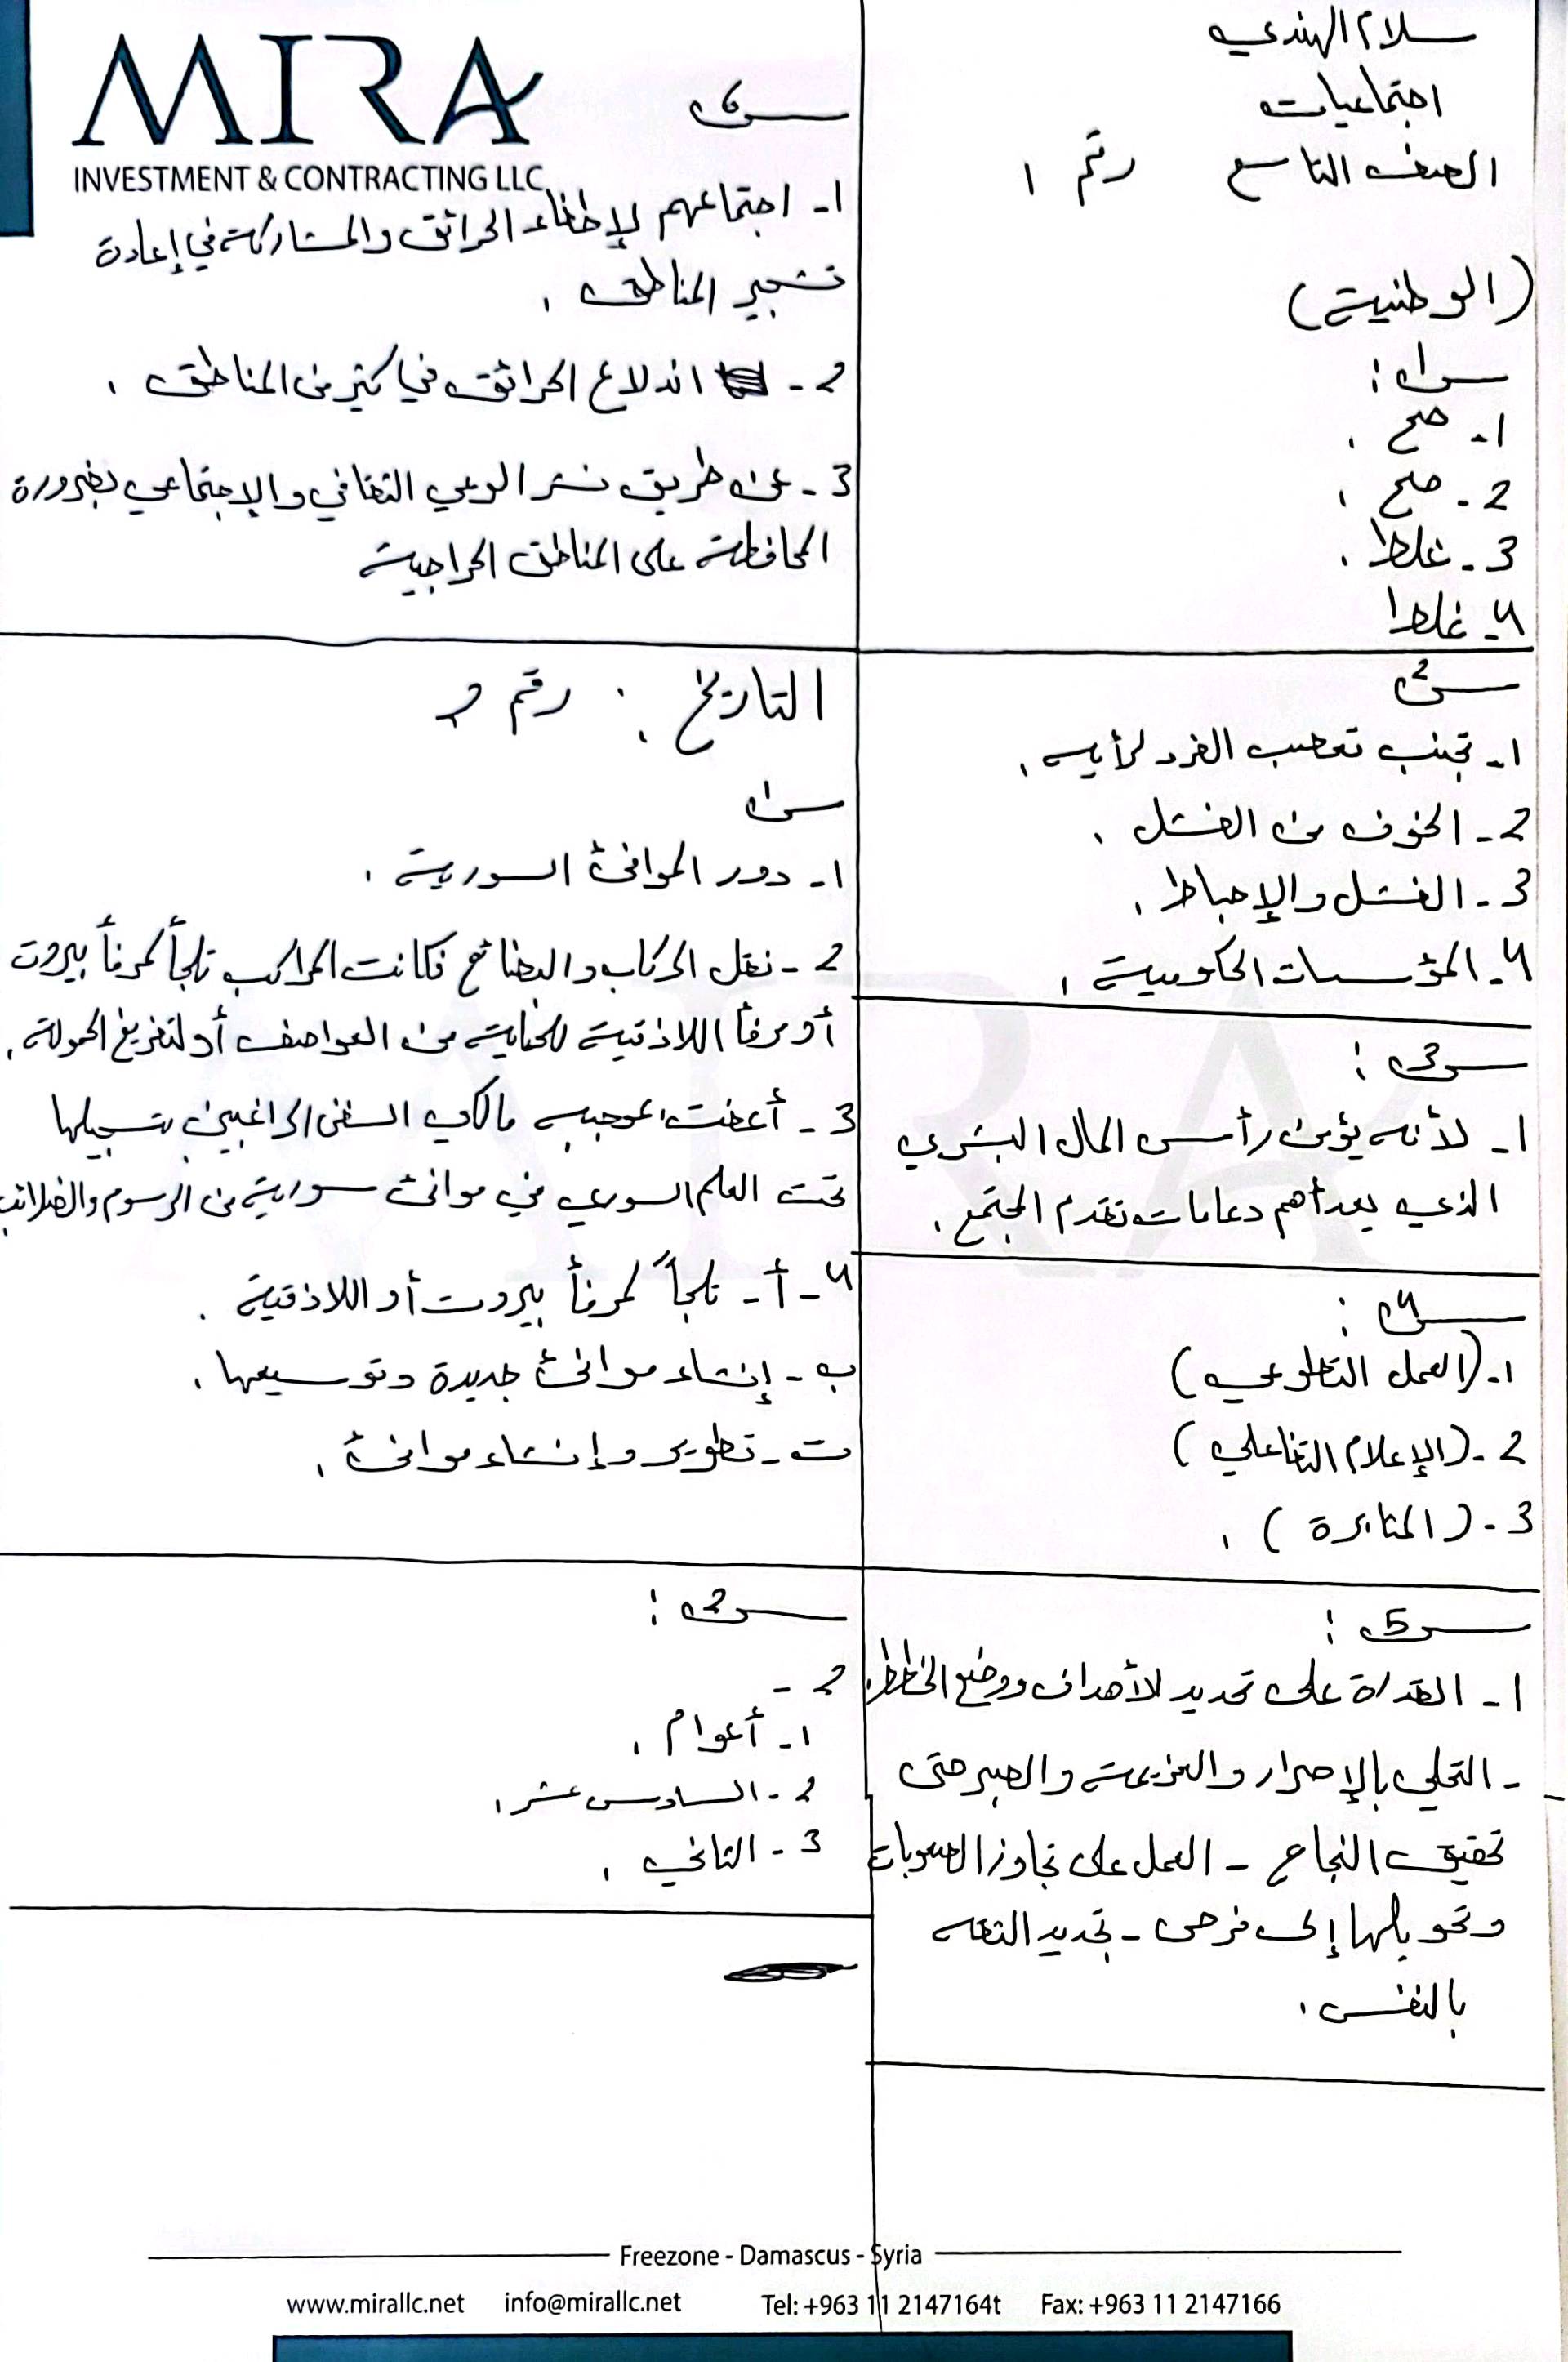 MIRA
INVESTMENT & CONTRACTING LLC
سلام الهندي
اجتماعيات
الصف التاسع رقم 1
(الوطنية)
س1:
1- صح.
2- صح.
3- غلط.
4- غلط
س2
1- تجنب تعصب الفرد لرأيه.
2- الخوف من الفشل.
3- الفشل والإحباط.
4- المؤسسات الحكومية.
س3:
1- لأنه يؤمن رأس المال البشري
الذي يعد أهم دعامات تقدم المجتمع.
س4:
1- (العمل التطوعي)
2- (الإعلام التفاعلي)
3- (المثابرة).
س5:
1- القدرة على تحديد الأهداف ووضع الخطط.
- التحلي بالإصرار والعزيمة والصبر حتى
تحقيق النجاح - العمل على تجاوز الصعوبات
وتحويلها إلى فرص - تجديد الثقة
بالنفس.
س6
1- اجتماعهم لإطفاء الحرائق والمشاركة في إعادة
تشجير المناطق.
2- اندلاع الحرائق في كثير من المناطق.
3- عن طريق نشر الوعي الثقافي والإجتماعي بضرورة
المحافظة على المناطق الحراجية
التاريخ: رقم 2
س1
1- دور الموانئ السورية.
2- نقل الركاب والبضائع فكانت المراكب تلجأ لمرفأ بيروت
أو مرفأ اللاذقية للحماية من العواصف أو لتفريغ الحمولة.
3- أعفت بموجبه مالكي السفن الراغبين بتسجيلها
تحت العلم السوري في موانئ سورية من الرسوم والضرائب
4- أ- تلجأ لمرفأ بيروت أو اللاذقية.
ب- إنشاء موانئ جديدة وتوسيعها.
ت- تطوير وإنشاء موانئ.
س2:
2-
1- أعوام.
2- السادس عشر.
3- الثاني.
Freezone - Damascus - Syria
www.mirallc.net info@mirallc.net Tel: +963 11 2147164t Fax: +963 11 2147166